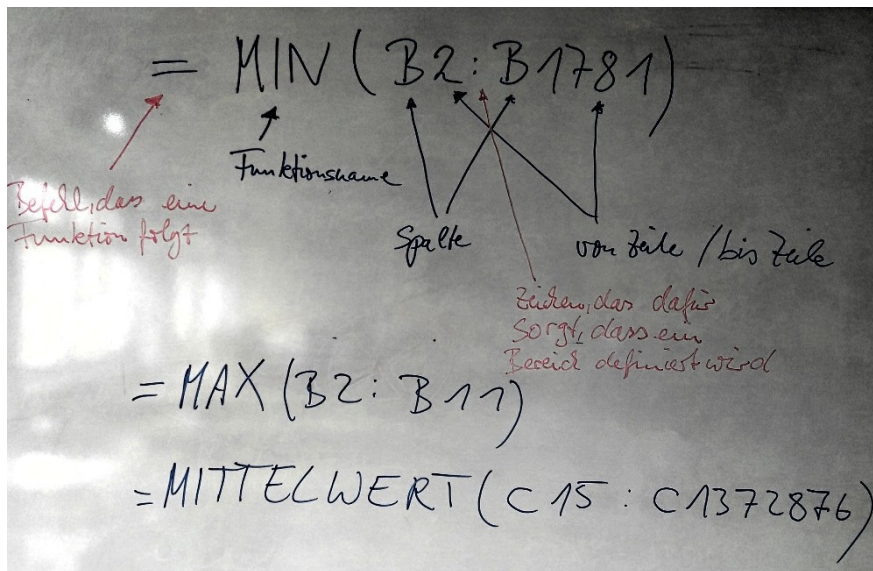 = MIN ( B2 : B1781 )
Funktionsname
Befehl, dass eine
Funktion folgt
Spalte
von Zeile / bis Zeile
Zeichen, das dafür
sorgt, dass ein
Bereich definiert wird
= MAX ( B2 : B11 )
= MITTELWERT ( C15 : C1372876 )